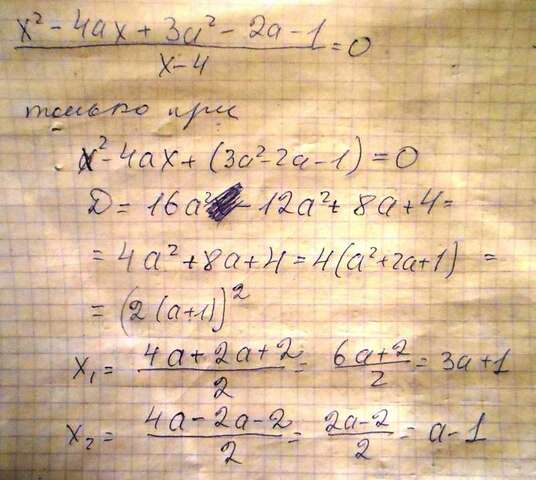 x² - 4ax + 3a² - 2a - 1 / x - 4 = 0
только при
x² - 4ax + (3a² - 2a - 1) = 0
D = 16a² - 12a² + 8a + 4 =
= 4a² + 8a + 4 = 4(a² + 2a + 1) =
= (2(a+1))²
x₁ = 4a + 2a + 2 / 2 = 6a + 2 / 2 = 3a + 1
x₂ = 4a - 2a - 2 / 2 = 2a - 2 / 2 = a - 1